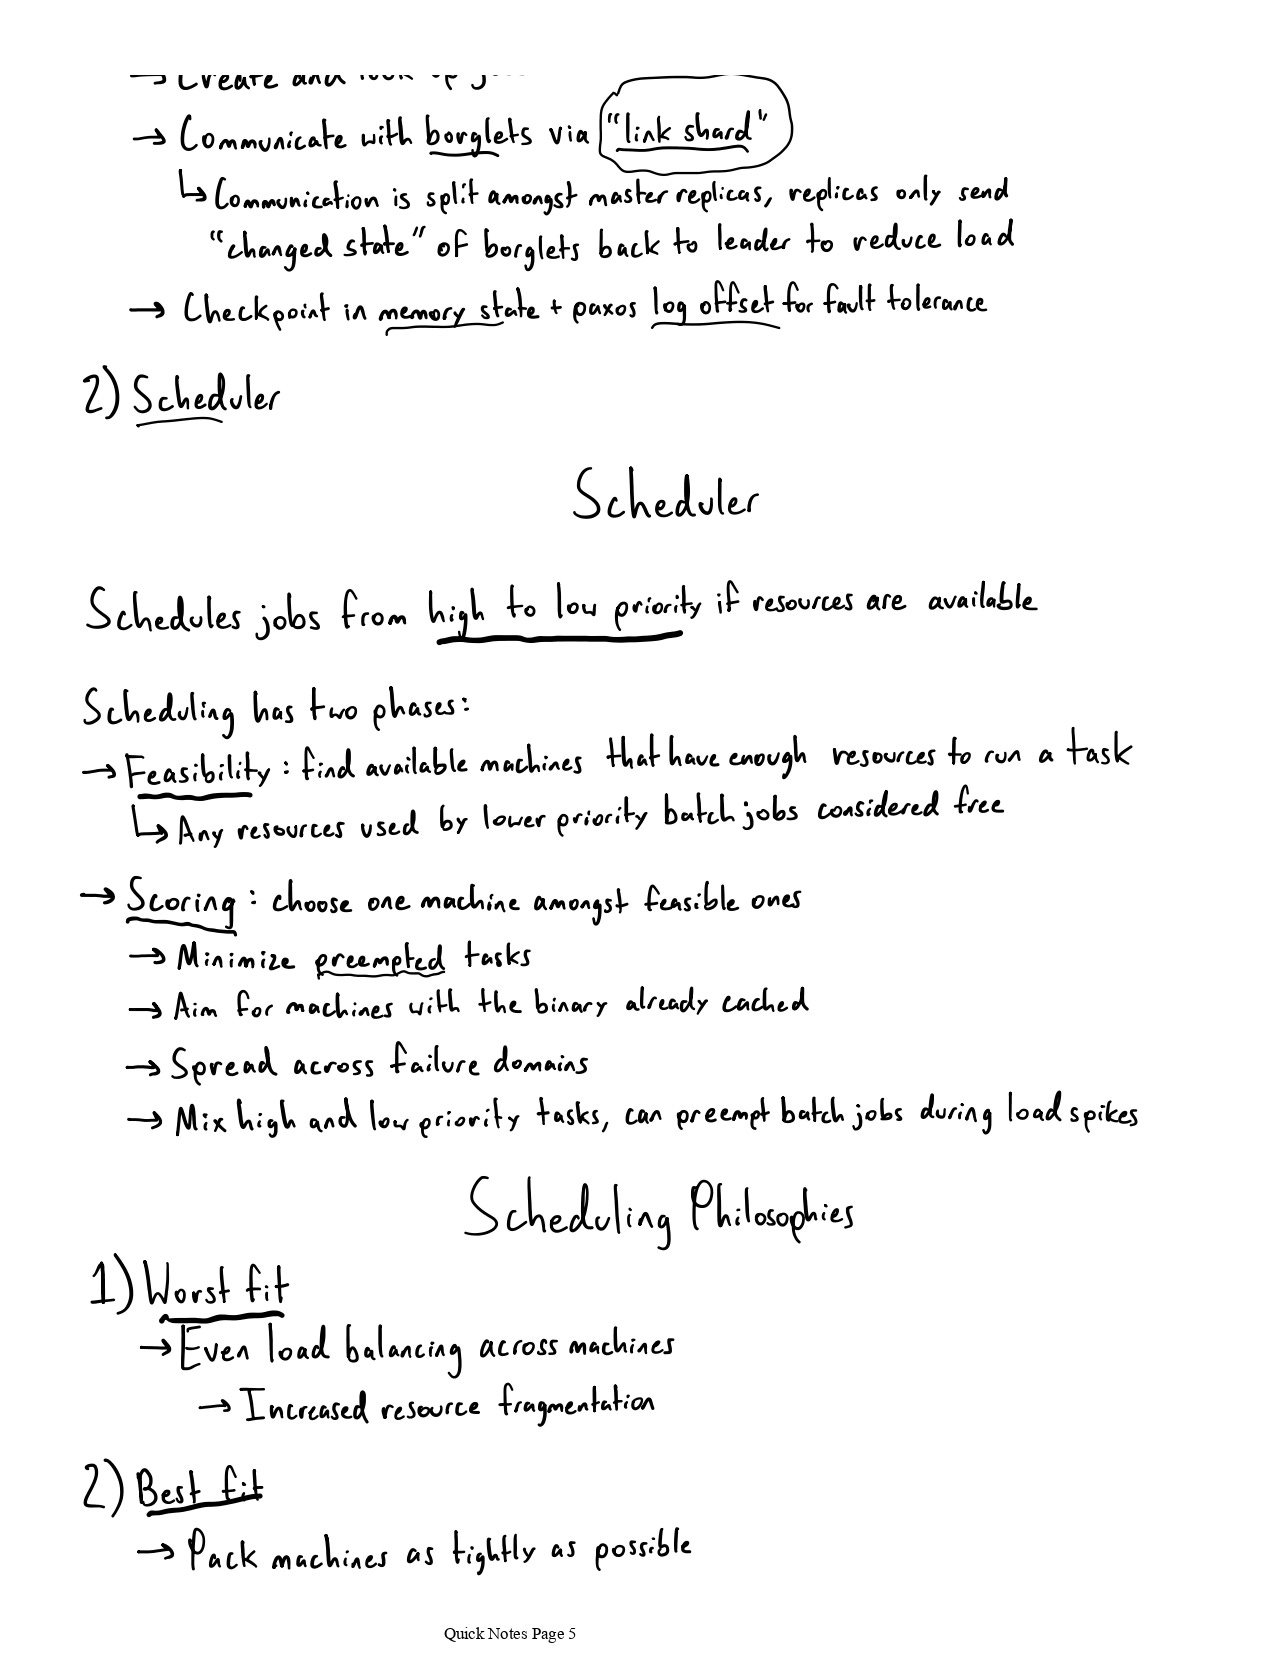 → Create and look up j
→ Communicate with borglets via "link shard"
↳ Communication is split amongst master replicas, replicas only send
"changed state" of borglets back to leader to reduce load
→ Checkpoint in memory state + paxos log offset for fault tolerance
2) Scheduler
Scheduler
Schedules jobs from high to low priority if resources are available
Scheduling has two phases:
→ Feasibility: find available machines that have enough resources to run a task
↳ Any resources used by lower priority batch jobs considered free
→ Scoring: choose one machine amongst feasible ones
→ Minimize preempted tasks
→ Aim for machines with the binary already cached
→ Spread across failure domains
→ Mix high and low priority tasks, can preempt batch jobs during load spikes
Scheduling Philosophies
1) Worst fit
→ Even load balancing across machines
→ Increased resource fragmentation
2) Best fit
→ Pack machines as tightly as possible
Quick Notes Page 5